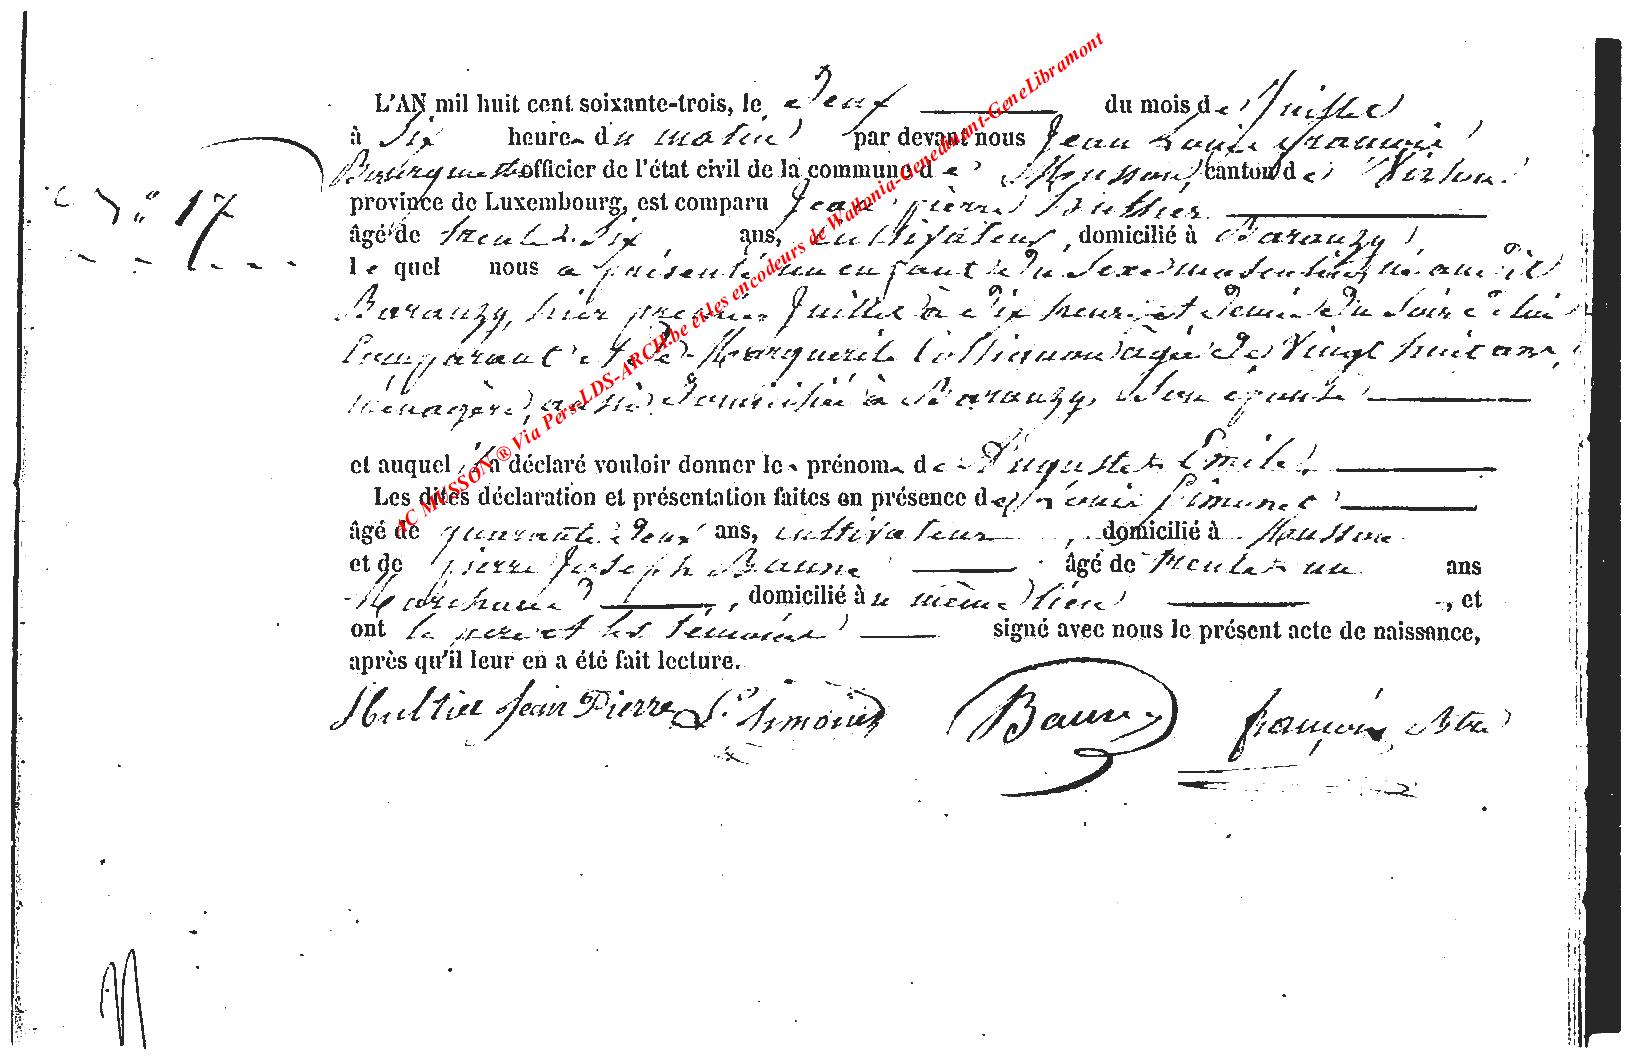 L'AN mil huit cent soixante-trois, le deux du mois de Juillet
à Six heures du matin par devant nous Jean Louis françois
Bourguet officier de l'état civil de la commune de Musson, canton de Virton
province de Luxembourg, est comparu Jean pierre Hulthier
N° 17
âgé de trente Six ans, cultivateur, domicilié à Baranzy,
le quel nous a présenté un enfant du Sexe masculin, né au dit
Baranzy, hier premier Juillet à dix heures et demie du Soir de lui
Comparant et de Marguerite Collignon âgée de Vingt huit ans,
ménagère, aussi domiciliée à Baranzy, Son épouse
et auquel il a déclaré vouloir donner les prénoms de Auguste Emile.
Les dites déclaration et présentation faites en présence de Louis Simonet
âgé de quarante deux ans, cultivateur, domicilié à Musson
et de pierre Joseph Baune âgé de trente un ans
Marchand, domicilié au même lieu, et
ont le pere et les témoins signé avec nous le présent acte de naissance,
après qu'il leur en a été fait lecture.
Hultier Jean Pierre L. Simonet Baune françois
AC MUSSON ® Via Pers-LDS-ARCH.be et les encodeurs de Wallonia-Genedinant-GeneLibramont